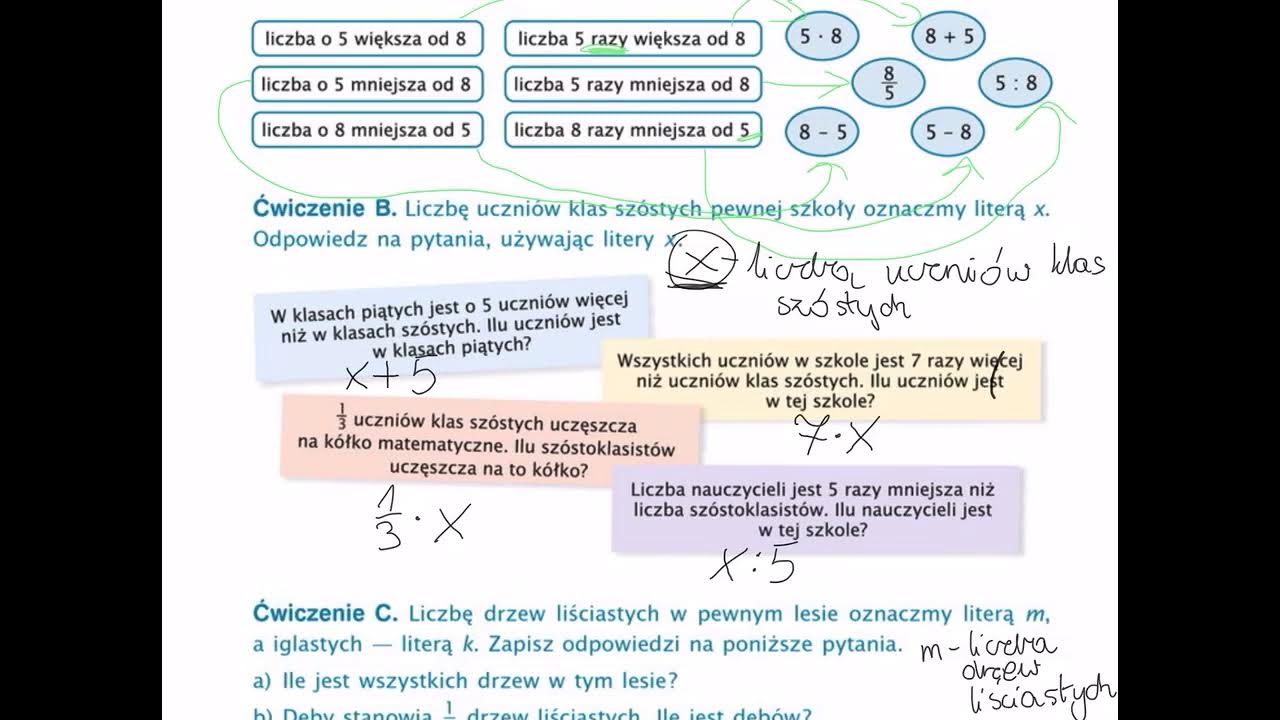 liczba o 5 większa od 8
liczba 5 razy większa od 8
5 · 8
8 + 5
liczba o 5 mniejsza od 8
liczba 5 razy mniejsza od 8
8/5
5 : 8
liczba o 8 mniejsza od 5
liczba 8 razy mniejsza od 5
8 – 5
5 – 8
Ćwiczenie B. Liczbę uczniów klas szóstych pewnej szkoły oznaczmy literą x.
Odpowiedz na pytania, używając litery x.
x - liczba uczniów klas
szóstych
W klasach piątych jest o 5 uczniów więcej
niż w klasach szóstych. Ilu uczniów jest
w klasach piątych?
x + 5
Wszystkich uczniów w szkole jest 7 razy więcej
niż uczniów klas szóstych. Ilu uczniów jest
w tej szkole?
7 · x
1/3 uczniów klas szóstych uczęszcza
na kółko matematyczne. Ilu szóstoklasistów
uczęszcza na to kółko?
1/3 · x
Liczba nauczycieli jest 5 razy mniejsza niż
liczba szóstoklasistów. Ilu nauczycieli jest
w tej szkole?
x : 5
Ćwiczenie C. Liczbę drzew liściastych w pewnym lesie oznaczmy literą m,
a iglastych — literą k. Zapisz odpowiedzi na poniższe pytania.
m - liczba
drzew
liściastych
a) Ile jest wszystkich drzew w tym lesie?
b) Dęby stanowią 1 drzew liściastych. Ile jest dębów?